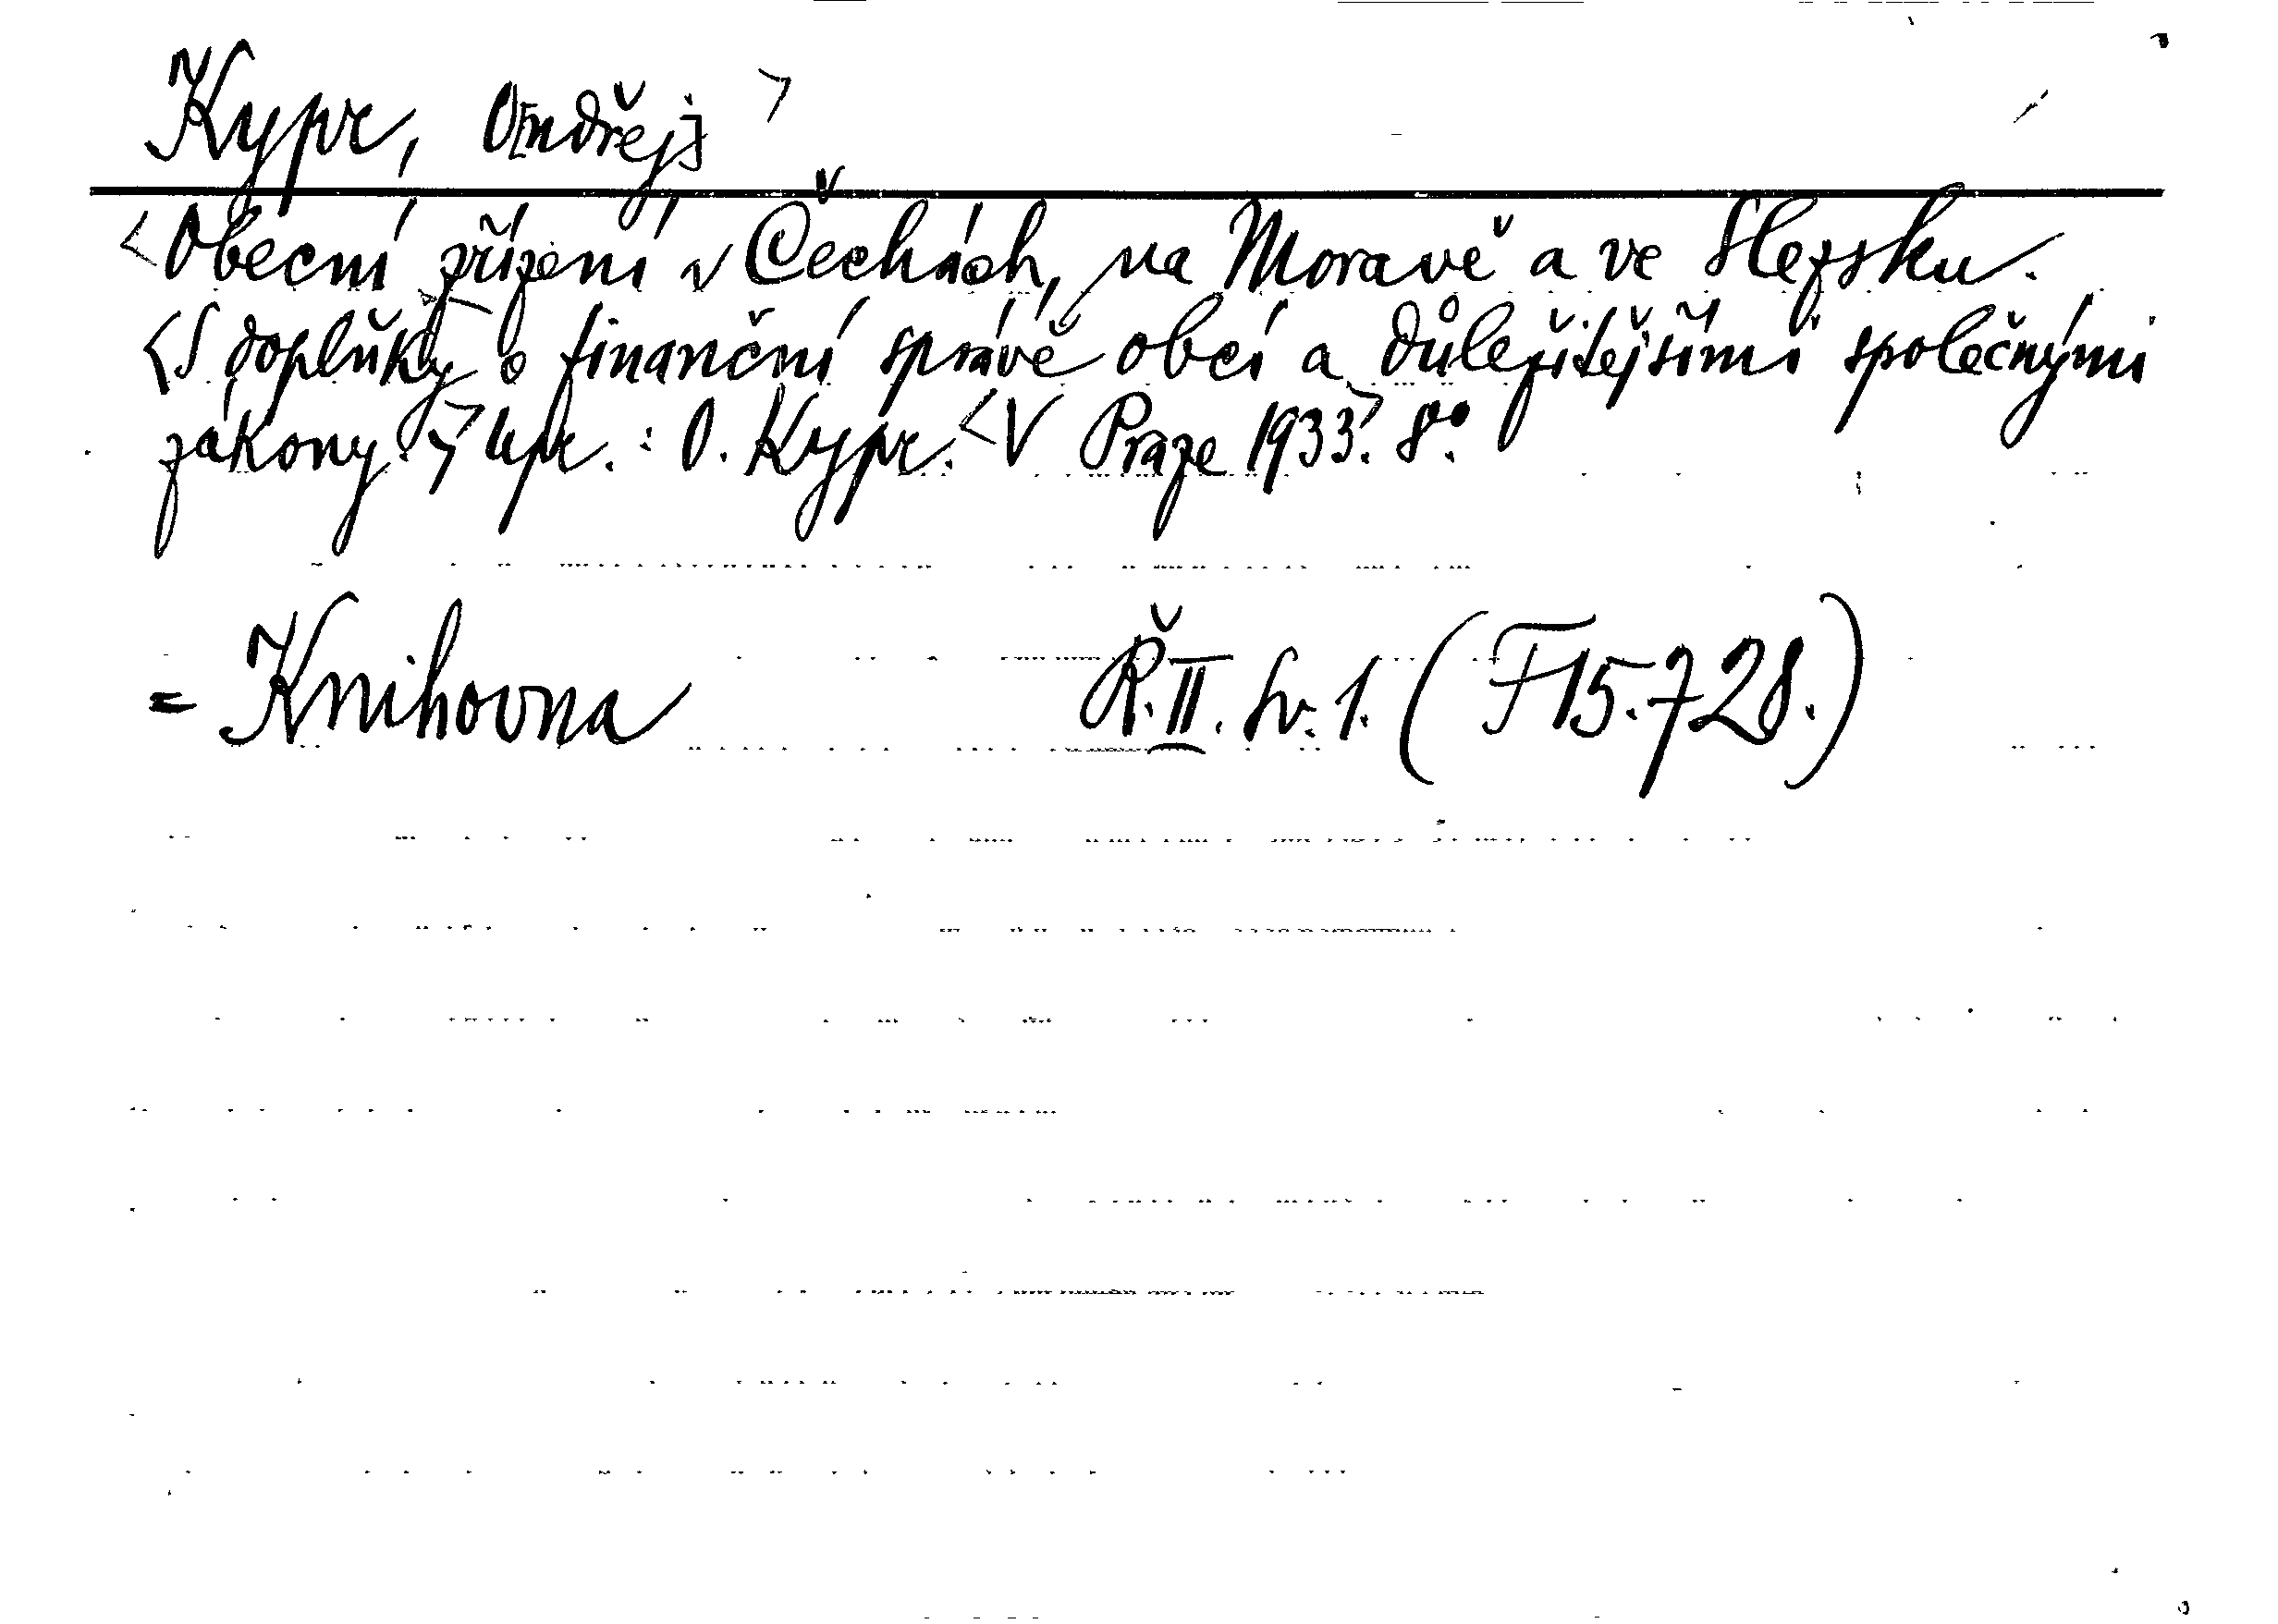 Kypr, O[ndřej]
<Obecní zřízení v Čechách, na Moravě a ve Slezsku.
<S doplňky o finanční správě obcí a důležitějšími společnými
zákony.> Upr.: O. Kypr. <V Praze 1933>. 8°.
= Knihovna Ř. II. Sv. 1. (F 15.728.)